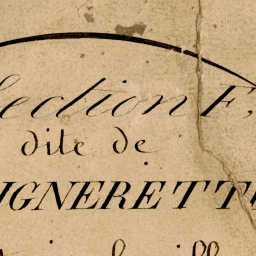 Section F.
dite de
IGNERETTE